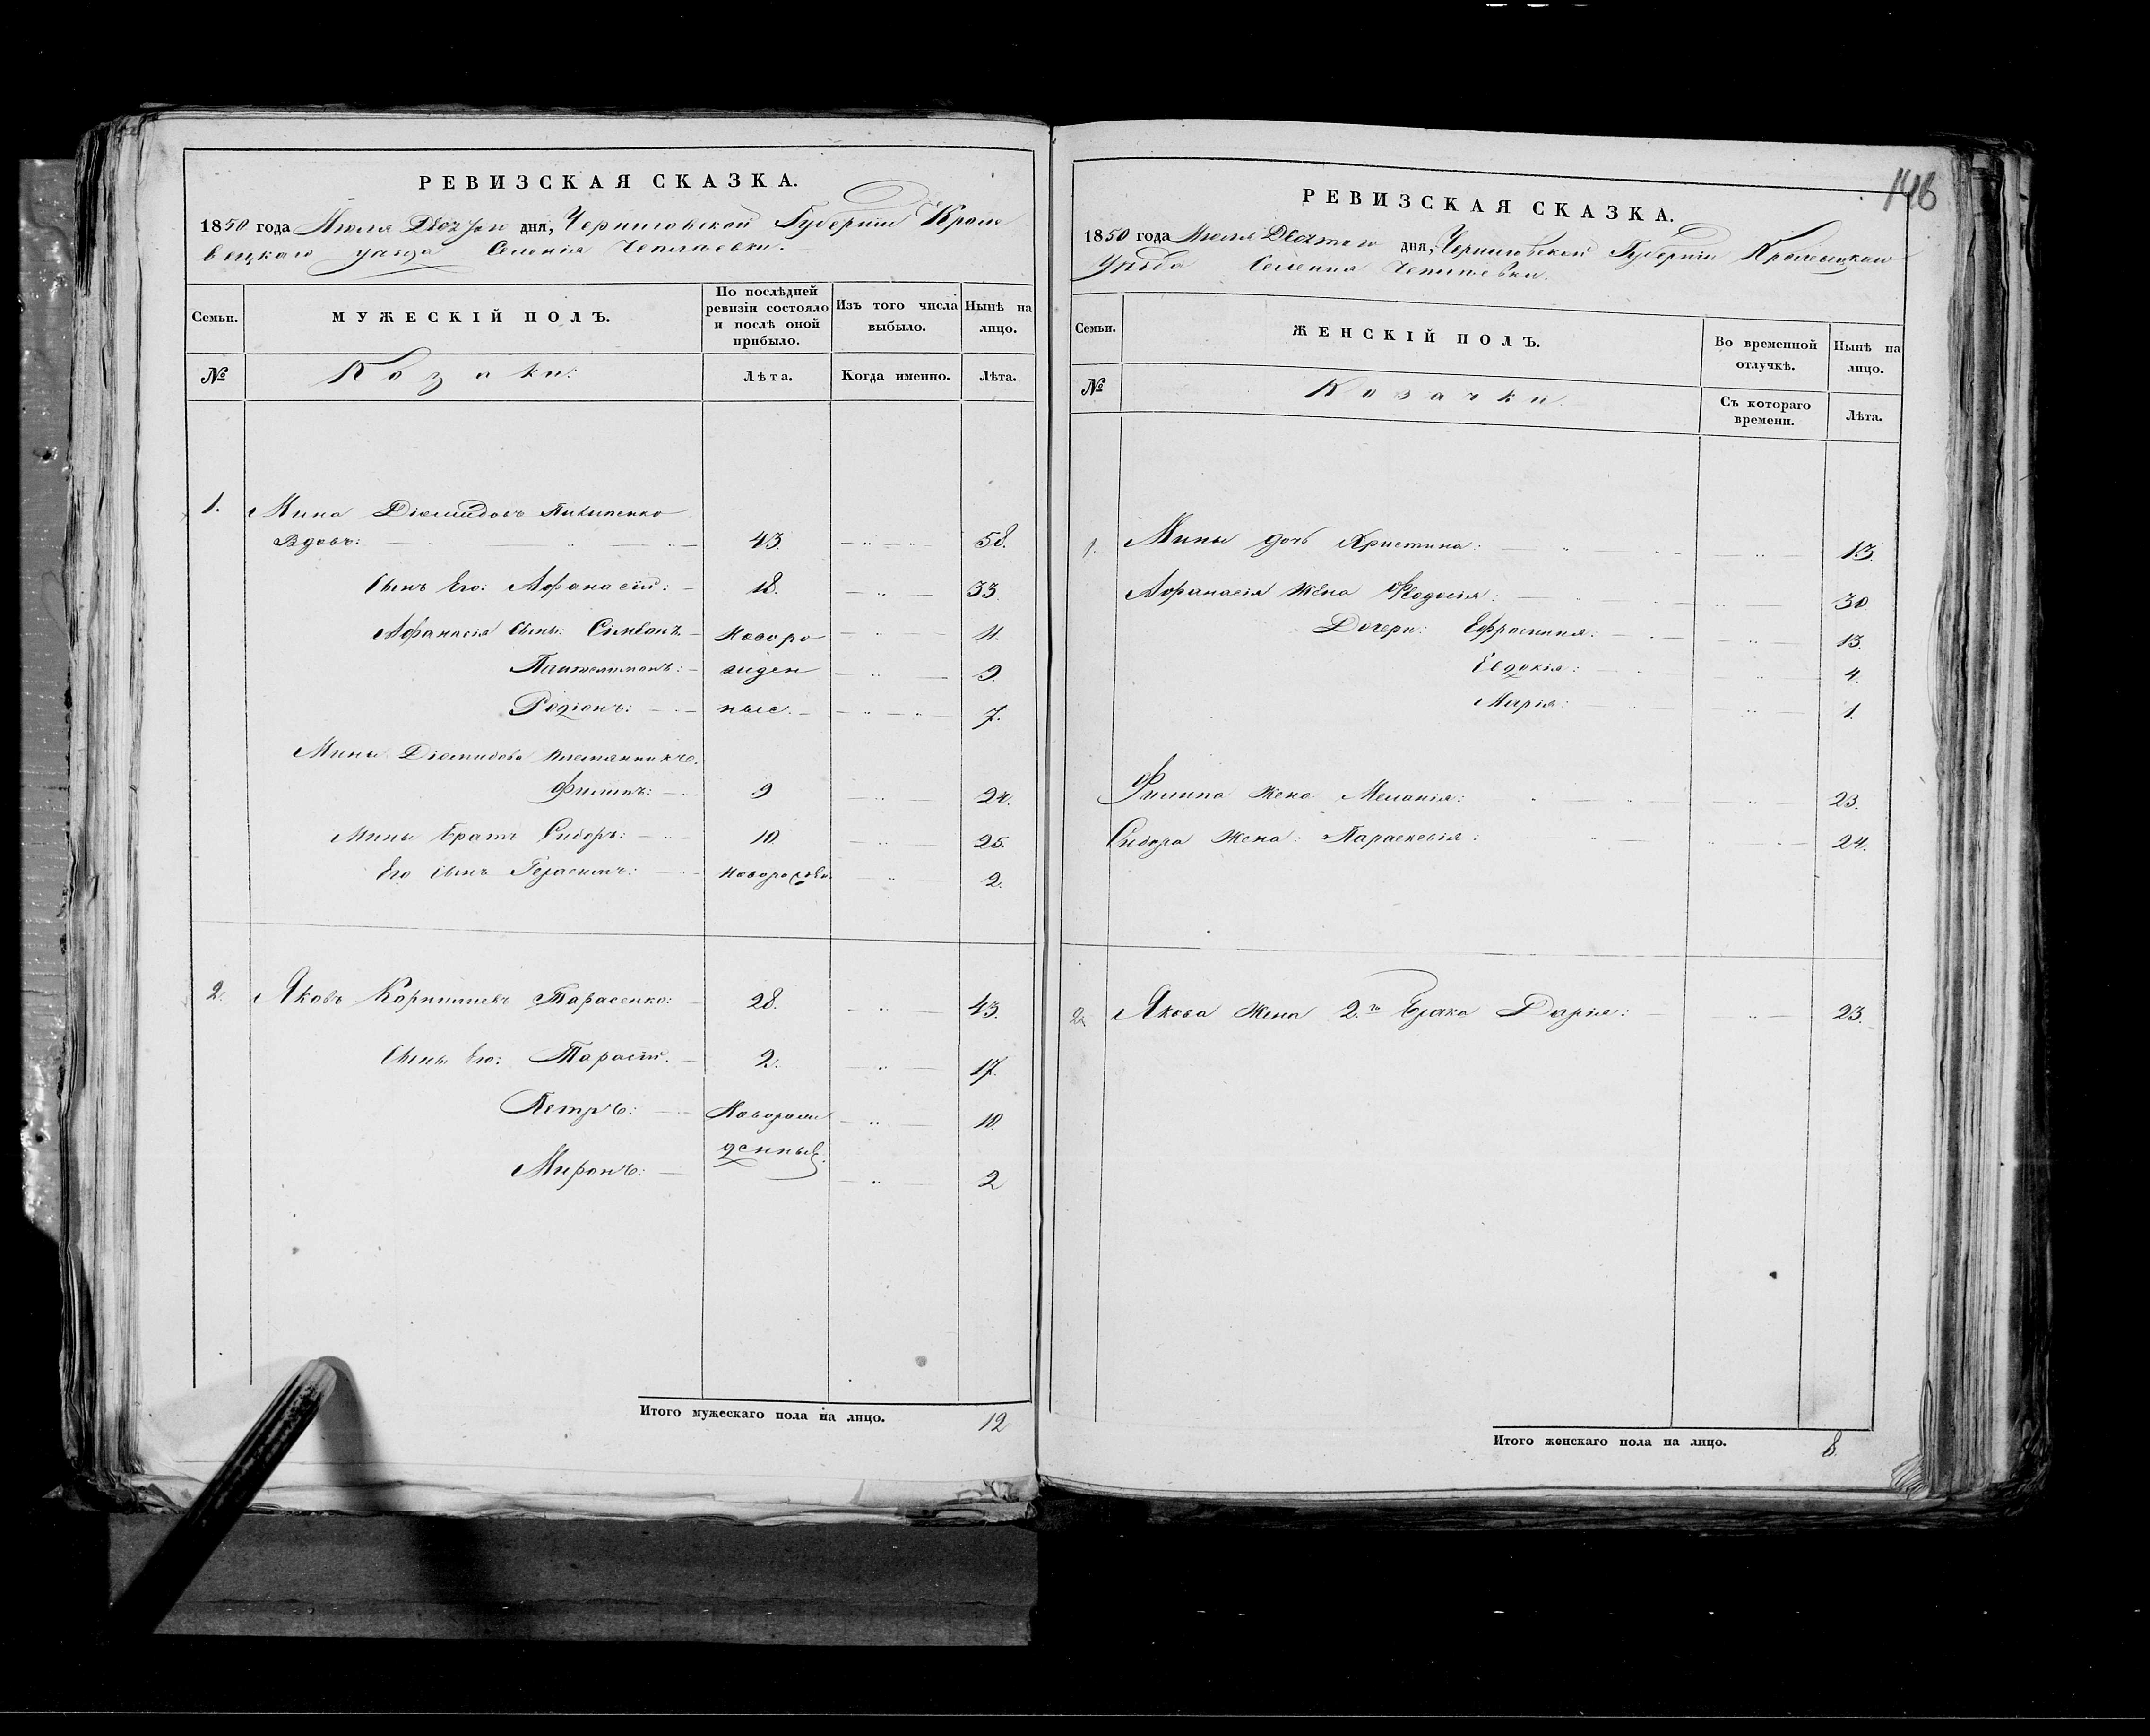 РЕВИЗСКАЯ СКАЗКА.
1850 года Июля дня, Черниговской Губернии Кроле
вецкаго уезда Селения Чеплаевки.
Семьи. МУЖЕСКІЙ ПОЛЪ. По послѣдней ревизіи состояло и послѣ оной прибыло. Изъ того числа выбыло. Нынѣ на лицо.
№ Козаки: Лѣта. Когда именно. Лѣта.
1. Мина Діомидовъ Пилипенко
Вдовъ: 43. 58.
Сынъ Его: Афанасій: 18. 33.
Афанасія Сыны: Симеонъ Новоро 11.
Пантелимонъ: жден 9.
Родіонъ: ные. 7.
Мины Діомидова племянникъ
Филипъ: 9 24.
Мины братъ Сидоръ: 10 25.
Его Сынъ Герасимъ: Новорожде. 2.
2. Яковъ Тарасенко: 28. 43.
Сыны Его: Тарасій. 2. 17.
Петръ: Новорож 10.
денный.
Миронъ: 2
Итого мужескаго пола на лицо. 12
146
РЕВИЗСКАЯ СКАЗКА.
1850 года Июля дня, Черниговской Губерніи Кролевецкаго
Уѣзда Селения Чеплаевки.
Семьи. ЖЕНСКІЙ ПОЛЪ. Во временной отлучкѣ. Нынѣ на лицо.
№ Козачки. Съ котораго времени. Лѣта.
1. Мины дочь Христина: 13.
Афанасія жена Феодосія: 30
Дочери: Ефросиния: 13.
Евдокія: 4.
Марія: 1.
Филипа жена Меланія: 23.
Сидора Жена: Параскевія: 24.
2. Якова Жена 2.го Брака Дарія: 23.
Итого женскаго пола на лицо. 8.